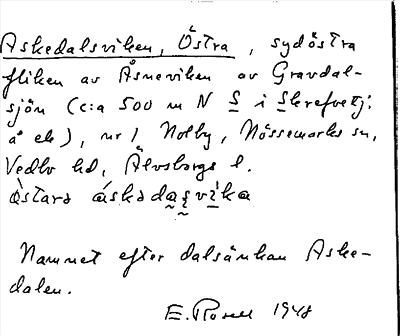 Askedalsviken, Östra, sydöstra
fliken av Åsneviken av Gravdal-
sjön (c:a 500 m N S i Skrefvetj:
å ek), nr 1 Nolby, Nössemarks sn,
Vedbo hd, Älvsborgs l.
àstarə áskədạṣvi̱ka
Namnet efter dalsänkan Aske-
dalen.
E. Rosell 1948